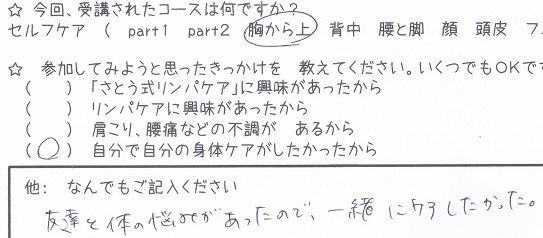 ☆ 今回、受講されたコースは何ですか?
セルフケア ( part1 part2 胸から上 背中 腰と脚 顔 頭皮 フ
☆ 参加してみようと思ったきっかけを 教えてください。いくつでもOKです
( ) 「さとう式リンパケア」に興味があったから
( ) リンパケアに興味があったから
( ) 肩こり、腰痛などの不調が あるから
(○) 自分で自分の身体ケアがしたかったから
他: なんでもご記入ください
友達と体の悩みがあったので、一緒に したかった。